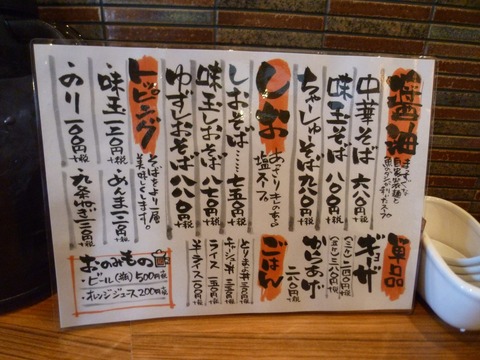 醤油
中華そば 六八〇円+税
味玉そば 八〇〇円+税
ちゃーしゅーそば 九八〇円+税
しお
あっさりきのあ
塩スープ
しおそば……七五〇円+税
味玉しおそば 八七〇円+税
ゆずしおそば 八八〇円+税
トッピング
そばをより一層
美味しくします。
味玉 一二〇円+税
めんま 二一〇円+税
のり 一〇〇円+税
九条ねぎ 二一〇円+税
単品
ギョーザ
からあげ
二六〇円+税
ごはん
とりまよ丼 三三〇円+税
チャーシュー丼 三三〇円+税
ライス 一五〇円+税
半ライス 一〇〇円+税
おのみもの
・ビール(瓶) 500円+税
・オレンジジュース 200円+税